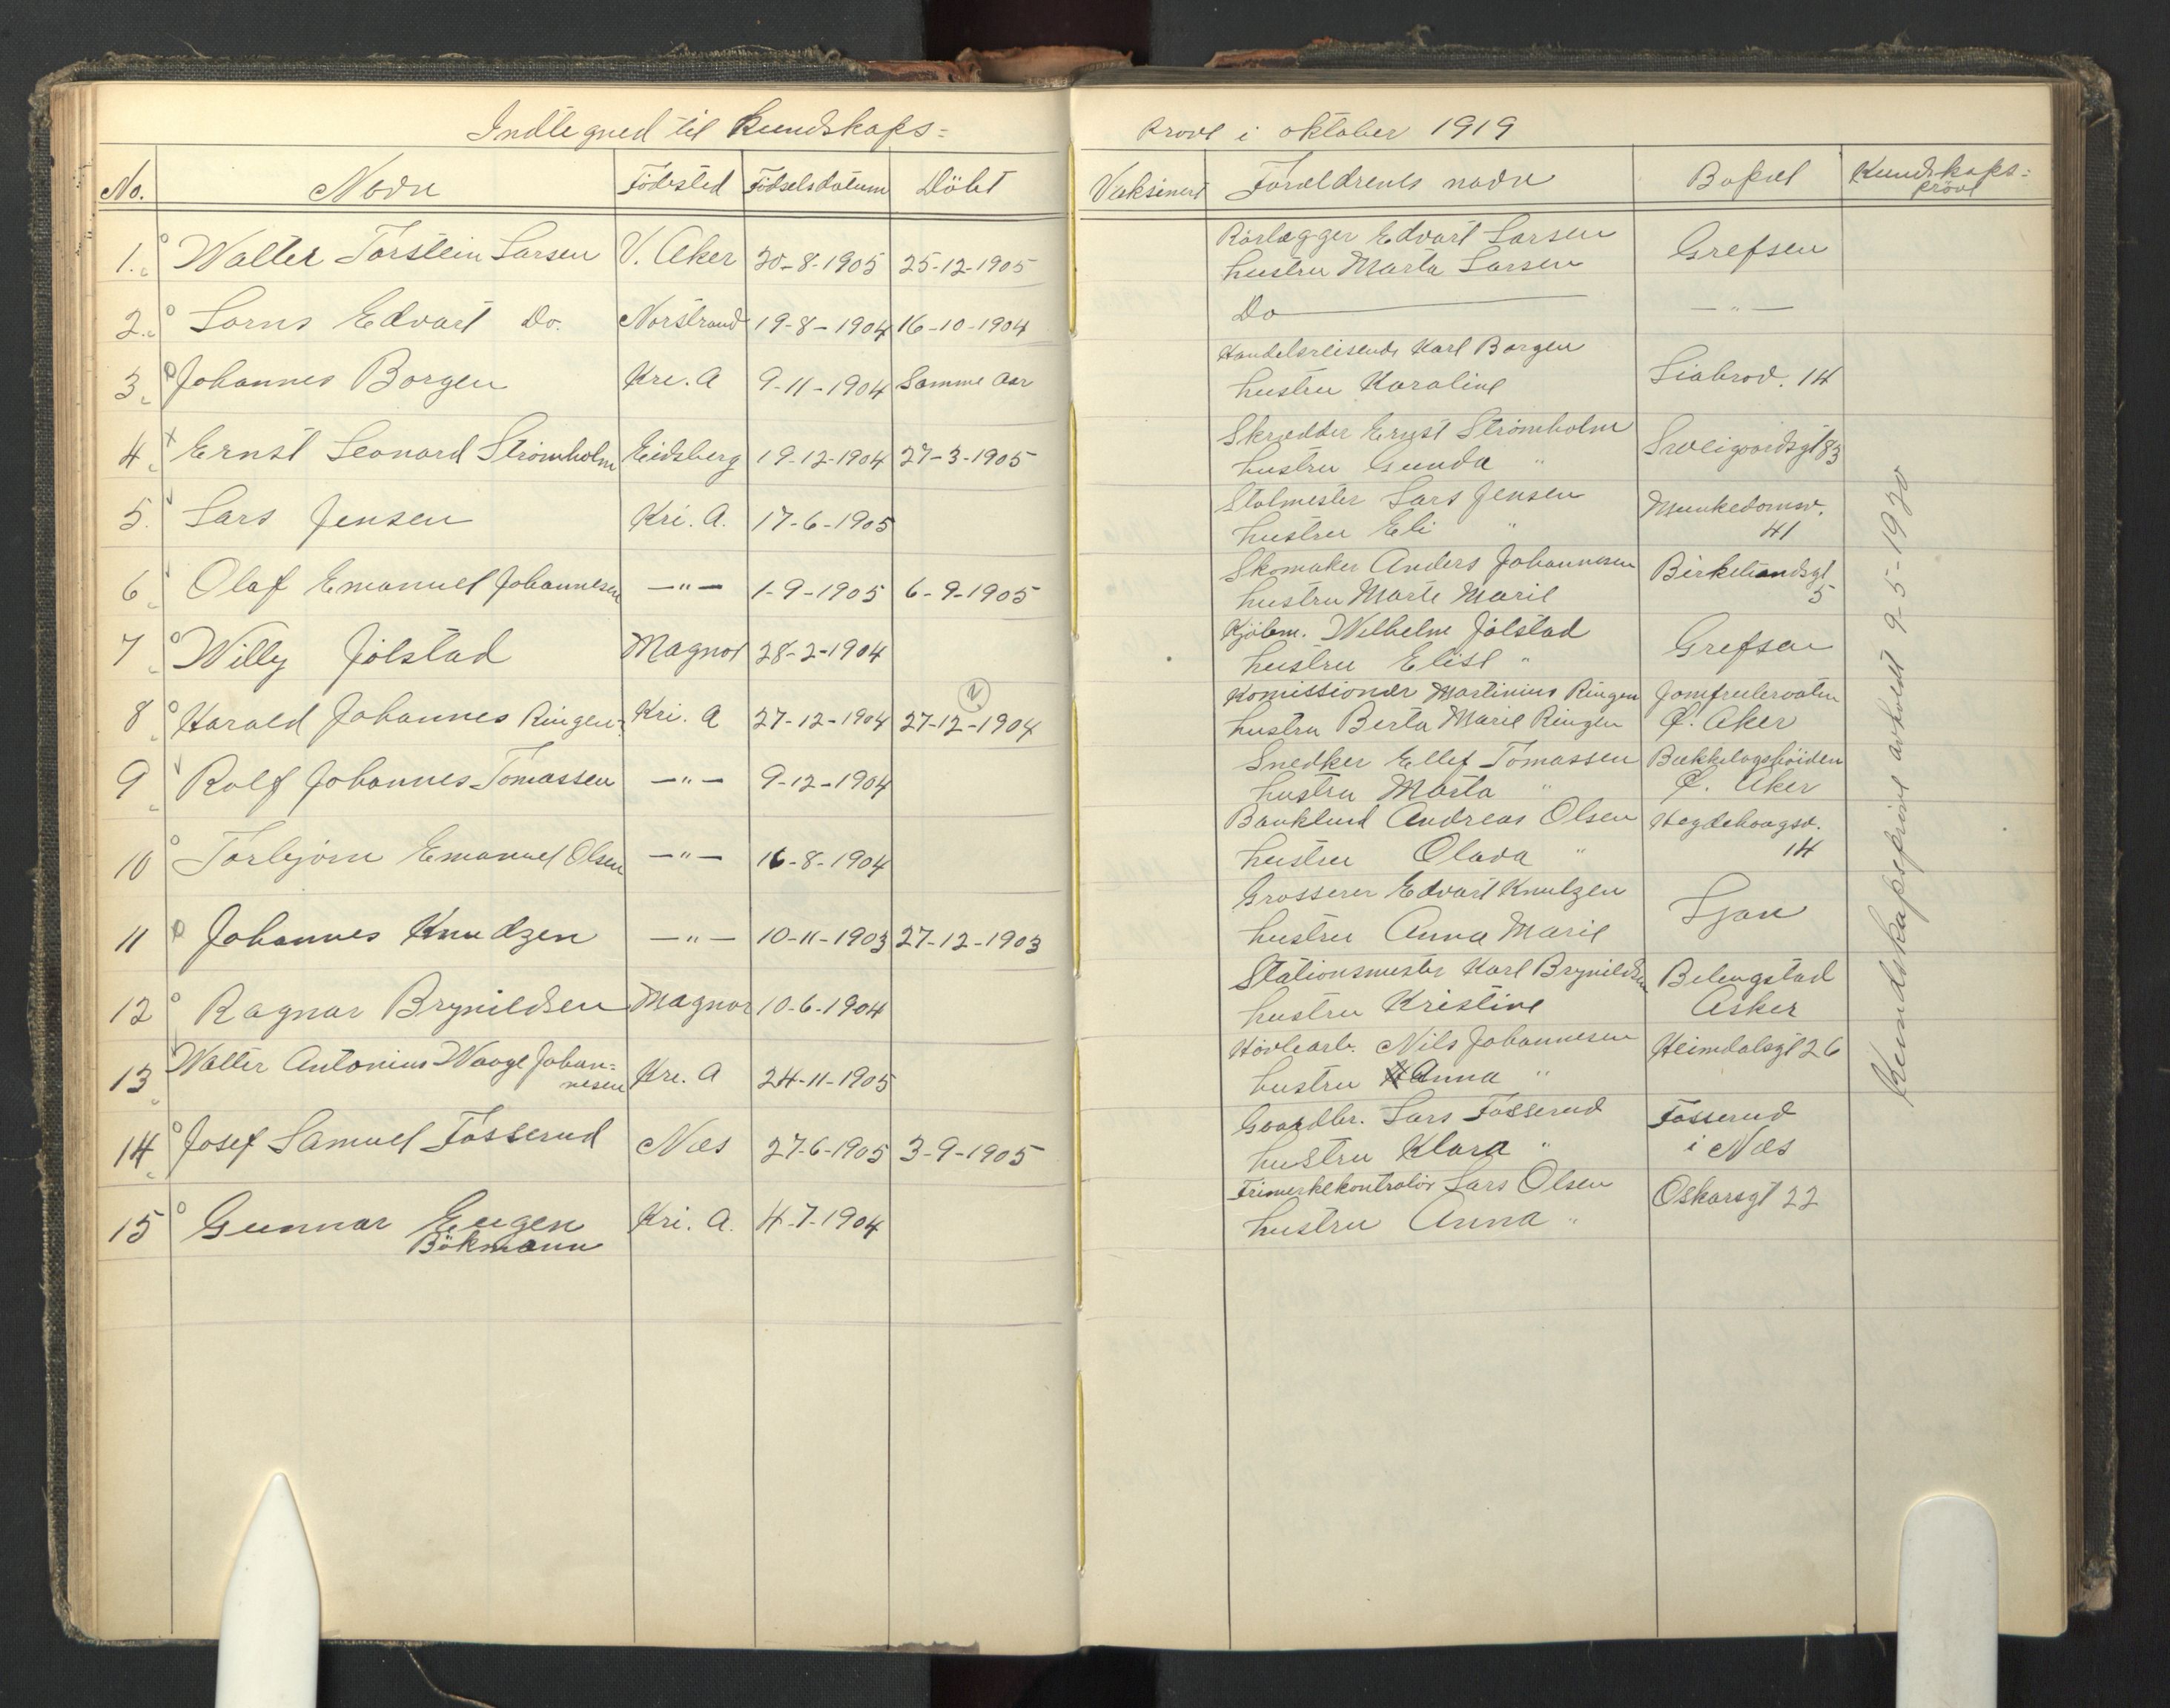 Indtegned til Kundskaps=
prøve i oktober 1919
No. Navn Födested Födselsdatum Döbt Vaksinert Forældrenes navn Bopæl Kundskaps=
pröve
1. Walter Torstein Larsen V. Aker 20-8-1905 25-12-1905 Rörlægger Edvart Larsen Grefsen
hustru Marta Larsen
2. Edvart Do. Norstrand 19-8-1904 16-10-1904 Do — " —
3. Johannes Borgen Kri. A 9-11-1904 Samme Aar Handelsreisende Karl Borgen 14
hustru Karoline
4. Ernst Leonard Strömholm Eidsberg 19-12-1904 27-3-1905 Skrædder Ernst Strömholm Sweigaardsgt 83
hustru Gunda "
5. Lars Jensen Kri. A. 17-6-1905 Stalmester Lars Jensen Munkedamsv.
hustru Eli " 41
6. Olaf Emanuel Johannesen — " — 1-9-1905 6-9-1905 Skomaker Anders Johannesen Birkelundsgt
hustru Marte Marie 5
7 Willy Jölstad Magnor 28-2-1904 Kjöbm. Wilhelm Jölstad Grefsen
hustru Elise "
8 Harald Johannes Ringen Kri. A 27-12-1904 27-12-1904 Komissionær Martinius Ringen Jomfrubrvaten
hustru Berta Marie Ringen Ø. Aker
9 Rolf Johannes Tomassen — " — 9-12-1904 Snedker Ellef Tomassen Bækkelagshöiden
hustru Marta " Ø. Aker
10 Torbjörn Emanuel Olsen — " — 16-8-1904 Andreas Olsen Hegdehaugsv.
hustru Olava " 14
11 Johannes Knudzen — " — 10-11-1903 27-12-1903 Grosserer Edvart Knutzen Ljan
hustru Anna Marie
12 Ragnar Brynildsen Magnor 10-6-1904 Stationsmester Karl Brynildsen Belengstad
hustru Kristine Asker
13 Walter Antonius Waage Johan=
nesen Kri. A 24-11-1905 Hövlearb. Nils Johannesen Heimdalsgt 26
hustru Anna "
14 Josef Samuel Fosserud Næs 27-6-1905 3-9-1905 Gaardbr. Lars Fosserud Fosserud
hustru Klara " i Næs
15 Gunnar Eugen Kri. A. 4-7-1904 Frimerkekontrolör Lars Olsen Oskarsgt 22
Bökmann hustru Anna "
Kundskapsprøve avholdt 9-5-1920